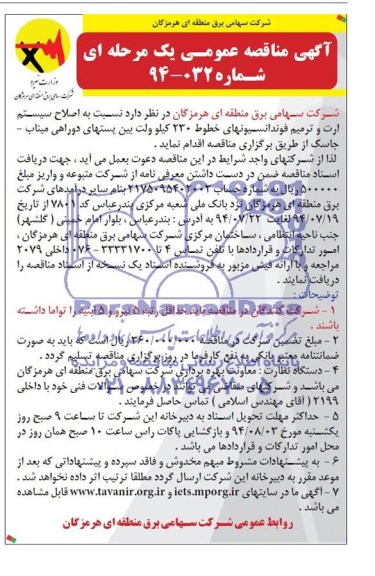 شرکت سهامی برق منطقه ای هرمزگان
آگهی مناقصه عمومی یک مرحله ای
شماره ۰۳۲-۹۴
وزارت نیرو
شرکت سهامی برق منطقه ای هرمزگان
شرکت سهامی برق منطقه ای هرمزگان در نظر دارد نسبت به اصلاح سیستم
ارت و ترمیم فونداسیونهای خطوط ۲۳۰ کیلو ولت بین پستهای دوراهی میناب -
جاسک از طریق برگزاری مناقصه اقدام نماید .
لذا از شرکتهای واجد شرایط در این مناقصه دعوت بعمل می آید ، جهت دریافت
اسناد مناقصه ضمن در دست داشتن معرفی نامه از شرکت متبوعه و واریز مبلغ
۵۰۰۰۰۰ ریال به شماره حساب ۲۱۷۵۰۹۵۴۰۲۰۰۲ بنام سایر درآمدهای شرکت
برق منطقه ای هرمزگان نزد بانک ملی شعبه مرکزی بندرعباس کد ۷۸۰۱ از تاریخ
۹۴/۰۷/۱۹ لغایت ۹۴/۰۷/۲۲ به آدرس : بندرعباس ، بلوار امام خمینی ( گلشهر)
جنب ناحیه انتظامی ، ساختمان مرکزی شرکت سهامی برق منطقه ای هرمزگان ،
امور تدارکات و قراردادها با تلفن تماس ۴ تا ۳۳۳۳۱۷۰۰-۰۷۶ داخلی ۲۰۷۹
مراجعه و با ارائه فیش مزبور به فروشنده اسناد یک نسخه از اسناد مناقصه را
دریافت نمایند .
توضیحات :
۱ - شرکت کنندگان در مناقصه باید حداقل رتبه ۵ نیرو و ۵ ابنیه را تواما داشته
باشند .
۲ - مبلغ تضمین شرکت در مناقصه ۳۶۰/۰۰۰/۰۰۰ ریال است که باید به صورت
ضمانتنامه معتبر بانکی به نفع کارفرما در روز برگزاری مناقصه تسلیم گردد .
۴ - دستگاه نظارت : معاونت بهره برداری شرکت سهامی برق منطقه ای هرمزگان
می باشد و شرکتهای متقاضی می توانند در خصوص سوالات فنی خود با داخلی
۲۱۹۹ ( آقای مهندس اسلامی ) تماس حاصل فرمایند .
۵ - حداکثر مهلت تحویل اسناد به دبیرخانه این شرکت تا ساعت ۹ صبح روز
یکشنبه مورخ ۹۴/۰۸/۰۳ و بازگشایی پاکات راس ساعت ۱۰ صبح همان روز در
محل امور تدارکات و قراردادها می باشد .
۶ - به پیشنهادات مشروط مبهم مخدوش و فاقد سپرده و پیشنهاداتی که بعد از
موعد مقرر به دبیرخانه این شرکت ارسال گردد مطلقا ترتیب اثر داده نخواهد شد .
۷ - آگهی ما در سایتهای iets.mporg.ir و www.tavanir.org.ir قابل مشاهده
می باشد .
روابط عمومی شرکت سهامی برق منطقه ای هرمزگان